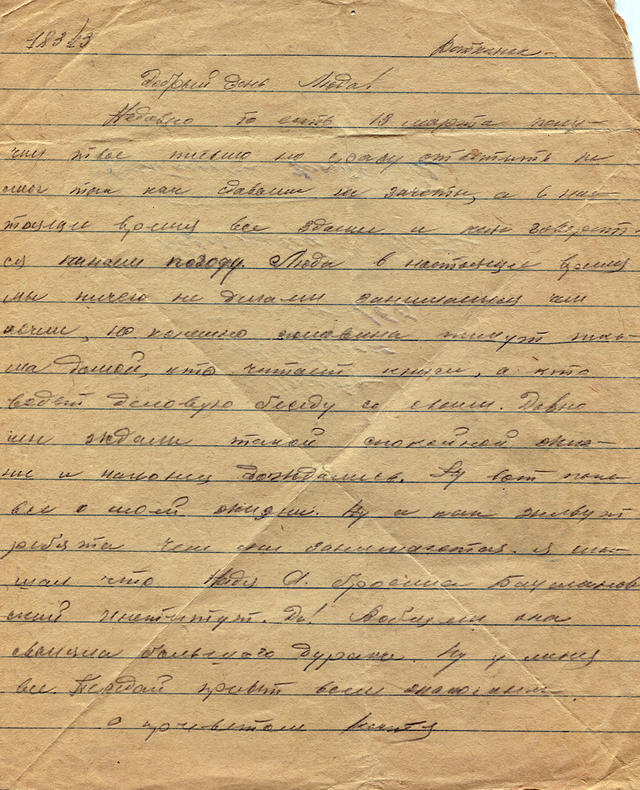 18 3 43 Воткинск
Добрый день Люда!
Недавно то есть 18 марта полу-
чил твое письмо но сразу ответить не
смог так как сдавали зачеты, а в нас-
тоящее время все сдали и
погоду. Люда в настоящее время
мы ничего не делаем занимаемся чем
хочем, но конешно половина пишут пись-
ма домой, кто читает книги, а кто
водит деловую беседу со своим. Давно
мы ждали такой спокойной жиз-
ни и наконец дождались. Ну вот пока
все о моей жизни. Ну а как живут
ребята чем они занимаются. Я слы-
шал что Надя А. бросила
институт. Да! Вобщем она
сваляла большого дурака. Ну у меня
все. Передай привет всем знакомым.
С приветом Витя